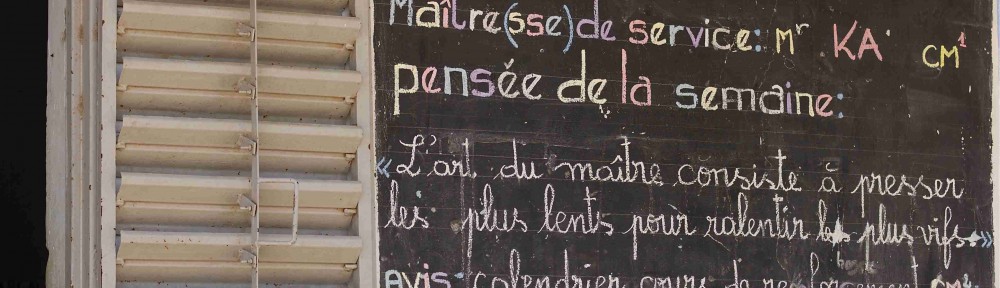 Maître(sse) de service: Mr KA CM1
pensée de la semaine:
«L'art du maître consiste à presser
les plus lents pour ralentir les plus vifs.»
AVIS: calendrier cours de renforcement CM2: